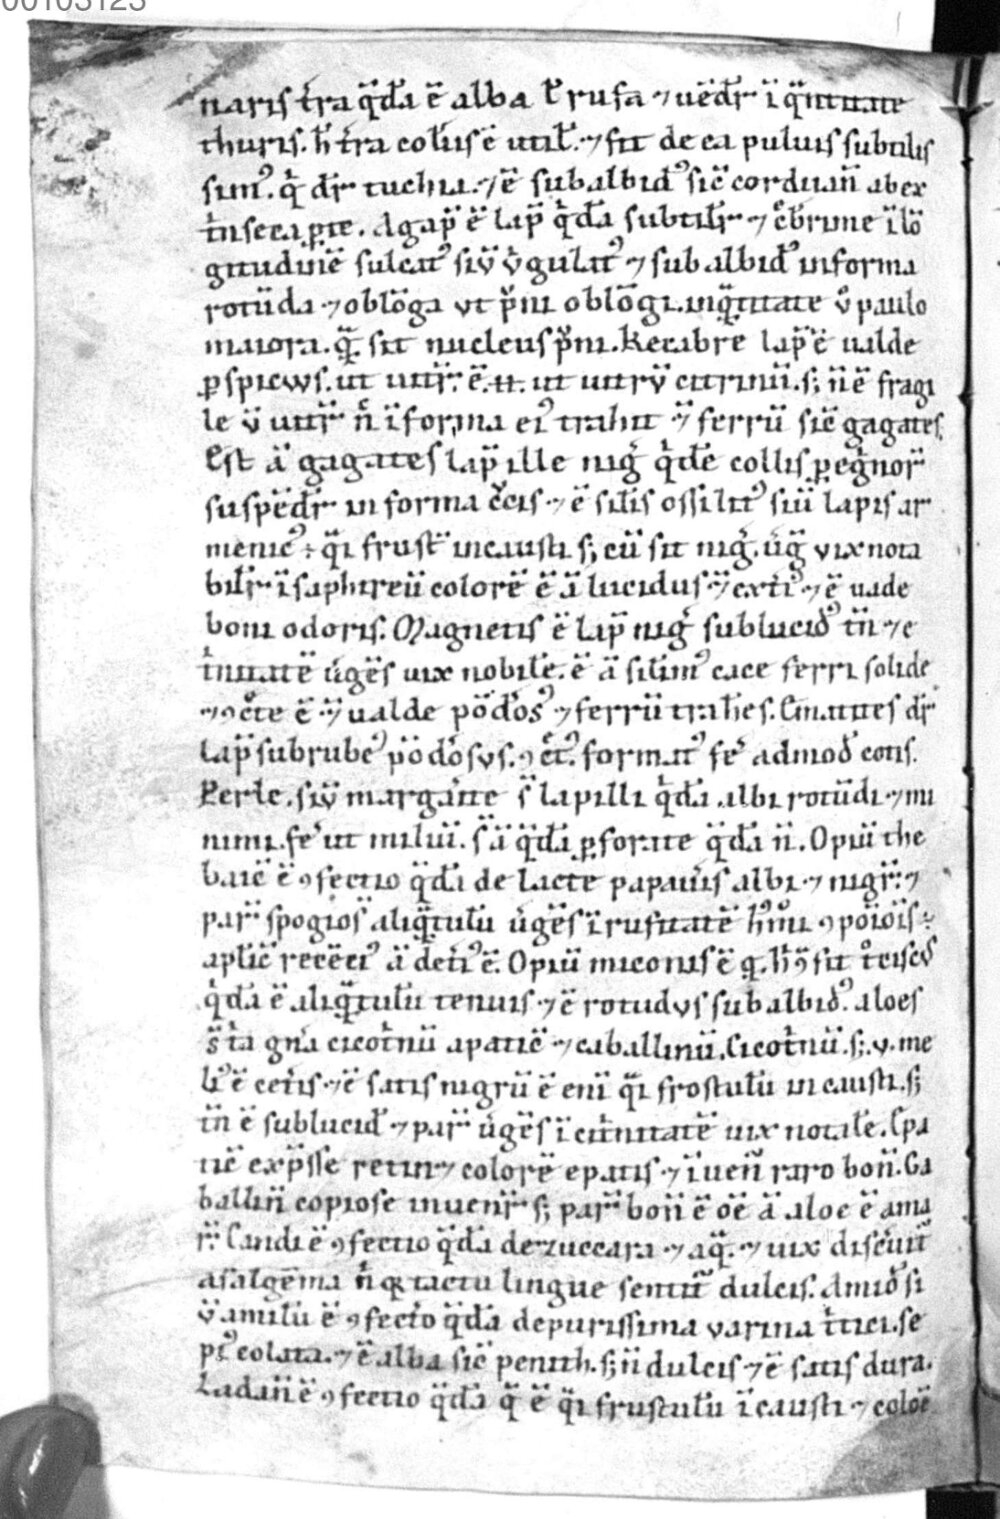 00103123
naris t̄ra q̄dā ē alba ł rufa ⁊ uēdr̄ ī q̄ntitate
thuris. h̄ t̄ra colīis ē utił. ⁊ fit de ea puluis subtilis
simꝰ. q̇ dr̄ tuchia. ⁊ ē subalbidꝰ sic̄ corduan̄ ab ex
t̄nseca ꝑte. Agap̄ ē lap̄ q̇dā subtilr̄ ⁊
gitudinē sulcatꝰ siū v̇gulatꝰ ⁊ subalbidꝰ in forma
rotūda ⁊ oblōga vt p̄ni oblōgi. in q̄ntitate ů paulo
maiora. q̄. sit nucleus p̄ni. Kecabre lap̄ ē ualde
ꝑspicuus. ut uitr̄. ē. n̄. ut uitrū citrinū. s; n̄ ē fragi
le ū uitr̄ n̄ ī forma eiꝰ trahit ⁊ ferrū sic̄ gagates.
Est ā gagates lap̄ ille niġ q̇ dē collis ꝑeġnor̄
suspēdr̄ in forma c̄cis ⁊ ē silīs siū lapis ar
menicꝰ ÷ q̄i frust̄ incausti s; cū sit niġ. v̇ḡ vix nota
bilr̄ ī saphireū colorē ē ā lucidus ⁊ ⁊ ē uade
boni odoris. Magnetis ē lap̄ niġ sublucidꝰ tn̄ ⁊ c
t̄nitatē v̇gēs uix nobilē. ē ā silīmꝰ cace ferri solide
⁊ ē ⁊ ualde pōdōsꝰ ⁊ ferrū trahēs. Ematites dr̄
lap̄ subrubeꝰ pōdōsus. formatꝰ ferꝰ ad mod̄ cotis.
Perle. siū margarite s̄ lapilli q̇dā albi rotūdi ⁊ mi
nimi. ferꝰ ut miluī. s̄ ā q̄dā ꝑforate q̄dā n̄. Opiū the
baic̄ ē ꝯfectio q̄dā de lacte papaůis albi ⁊ nigr̄. ⁊
par̄ spōgios̄ aliq̄tulū v̇gēs ī rufitatē
aplic̄ ā ē. Opiū miconis ē
q̇dā ē aliq̄tulū tenuis ⁊ ē rotūdus subalbidꝰ. aloes
s̄ t̄a gn̄a cicot̄nū apatic̄ ⁊ caballinū. Cicot̄nū. s;. v. me
liꝰ ē cet̄is ⁊ ē satis nigrū ē enī q̄i frostulū incausti. s;
tn̄ ē sublucid̄ ⁊ par̄ v̇gēs ī cit̄nitatē uix notalē. Epa
tic̄ exp̄sse retin⁊ colorē epatis ⁊ īuen̄ raro bon̄. Ca
ballin̄ copiose inuenr̄ s; par̄ bon̄ ē oē ā aloe ē ama
r̄. Candi ē ꝯfectio q̄dā de zuccara ⁊ aq̄. ⁊ uix discėnit̄
a sal gēma n̄ q tactu lingue sentit̄ dulcis. Amid̄ si
ū amilū ē ꝯfectō q̄dā de purissima varina t̄tici. se
pꝰ colata. ⁊ ē alba sic̄ penith. s; n̄ dulcis ⁊ ē satis dura.
Ladan̄ ē ꝯfectio q̄dā q̄ ē q̄i frustulū īcausti ⁊ coloē